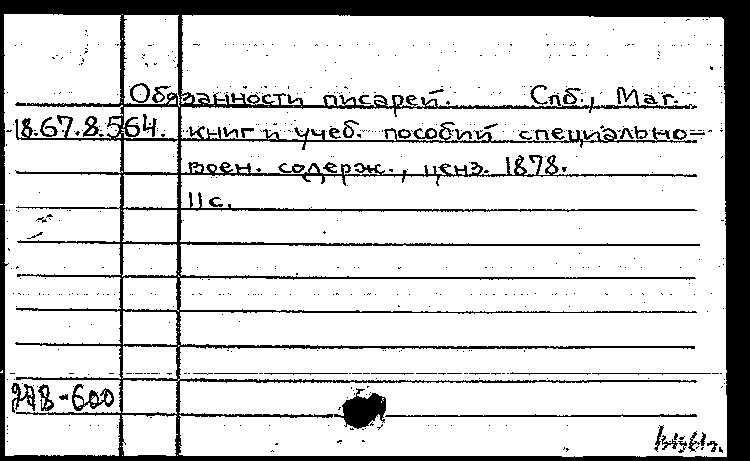 Обязанности писарей. Спб., Маг.
18.67.8.564. книг и учеб. пособий специально-
воен. содерж., ценз. 1878.
11 с.
-600